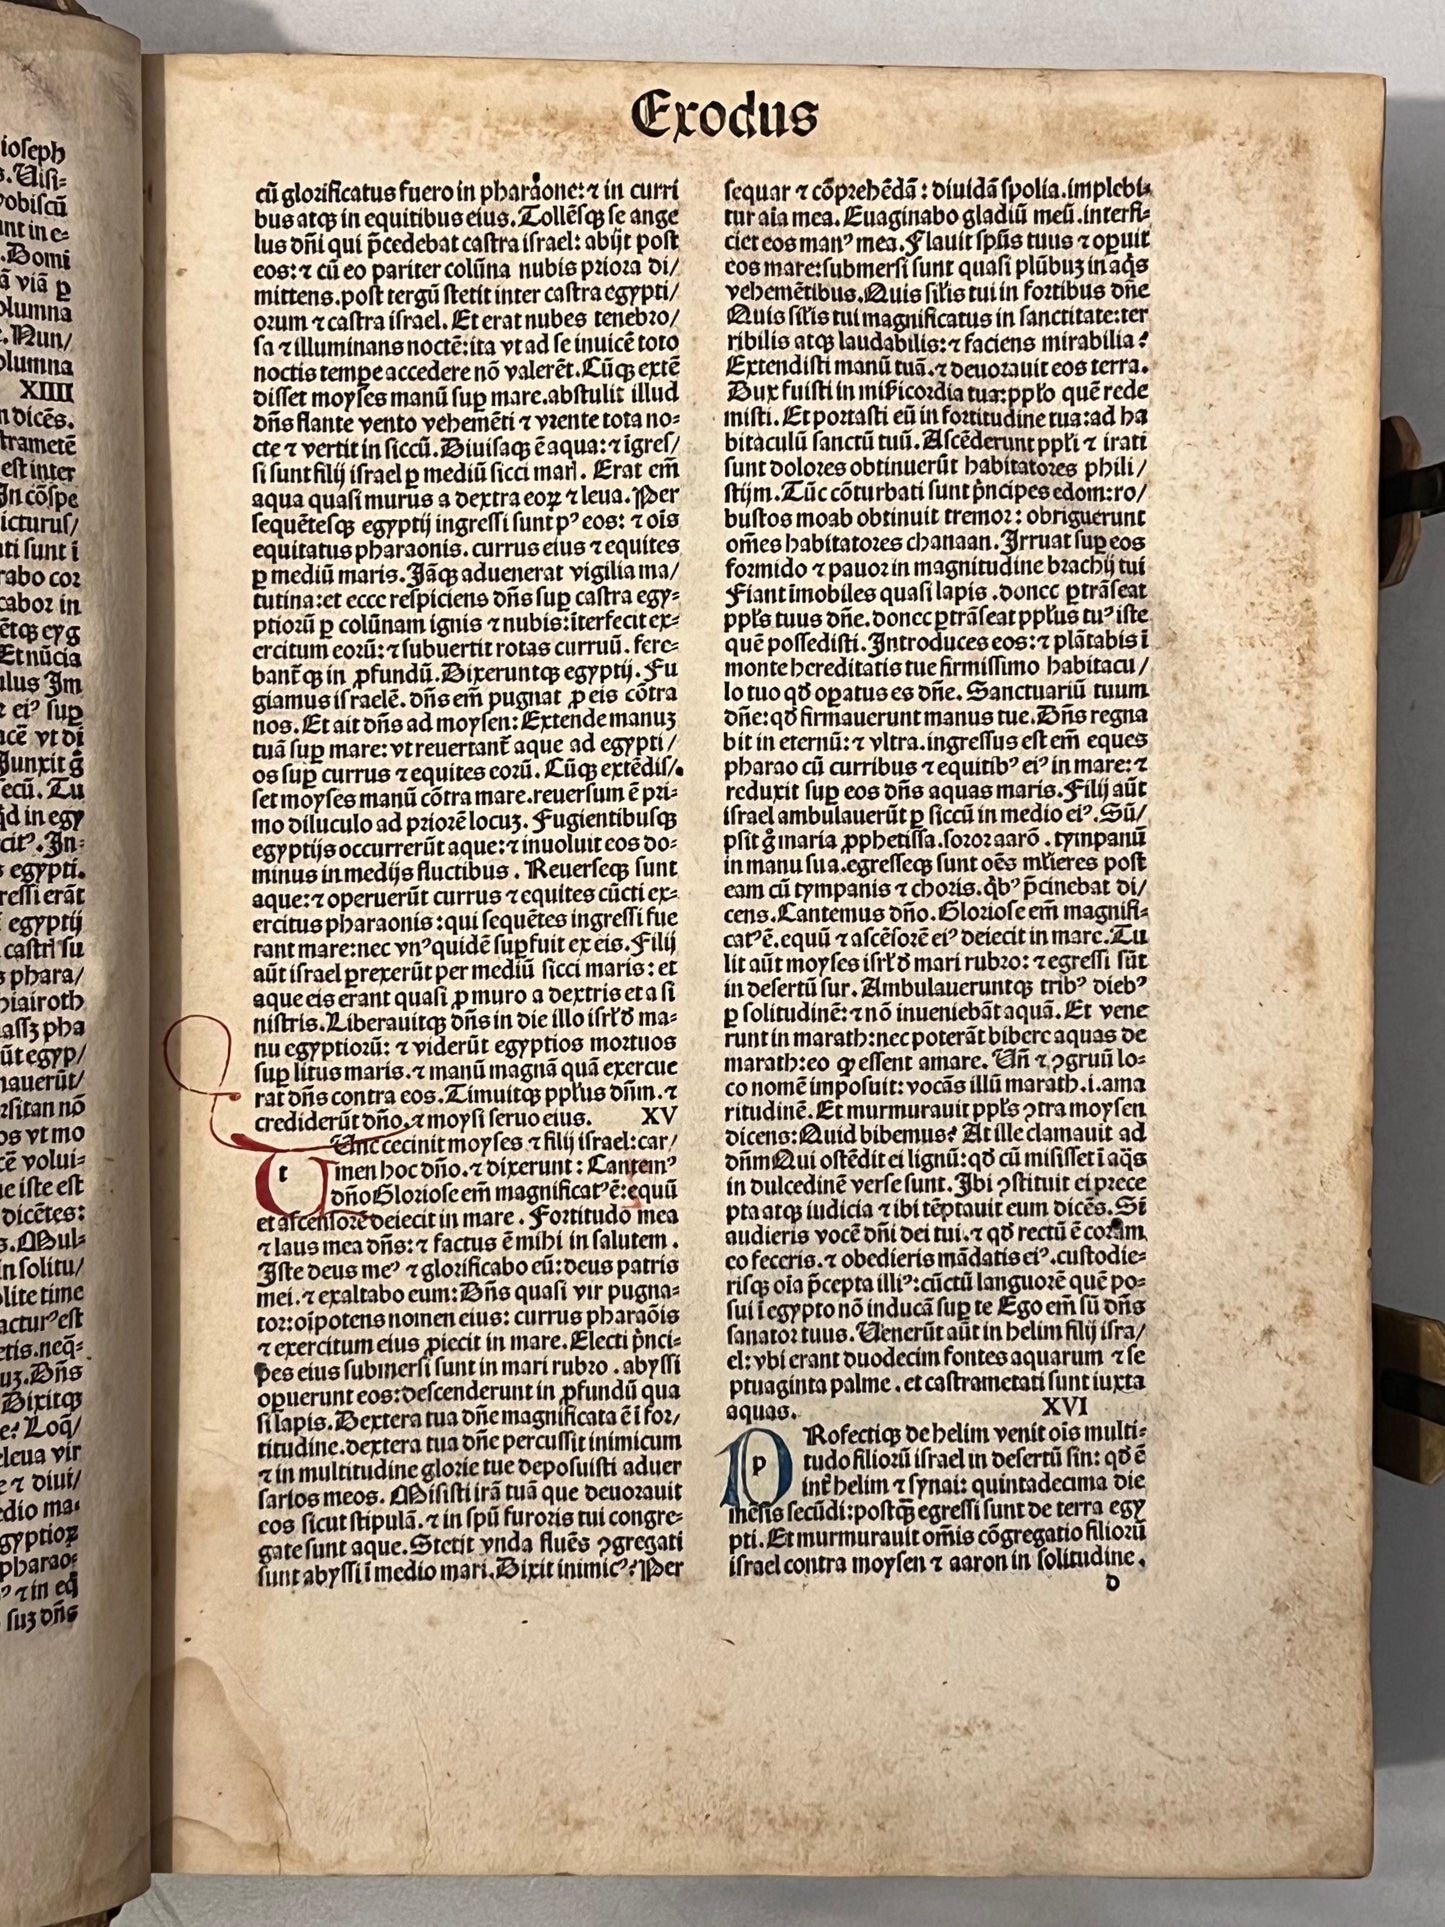 ioseph
s. Uisi-
vobiscū
unt in e-
. Domi
ā viā ꝑ
olumna
. Nun/
olumna
XIIII
n dicēs.
strametē
est inter
In cōspe
icturus/
ti sunt ī
rabo cor
cabor in
ētqꝫ eyg
Et nūcia
ulus Im
r ei⁹ suꝑ
cē vt di
Junxit g̊
secū. Tu
qd in egy
cit⁹. In-
s egypti.
ressi erāt
egyptij
castrꝭ su
s phara/
hiairoth
assꝫ pha
ūt egyp/
nauerūt/
rsitan nō
os vt mo
cē volui-
ue iste est
dicētes:
s. Mul-
in solitu/
olite time
actur⁹ est
etis.neq̃-
uꝫ. Dñs
Dixitqꝫ
e? Loq̃/
eleua vir
e ⁊ diui/
edio ma-
egyptioꝝ
pharao-
⁹ ⁊ in eq̃
suꝫ dñs
Exodus
cū glorificatus fuero in pharaone: ⁊ in curri
bus atqꝫ in equitibus eius. Tollēsqꝫ se ange
lus dñi qui p̄cedebat castra israel: abijt post
eos: ⁊ cū eo pariter colūna nubis priora di/
mittens. post tergū stetit inter castra egypti/
orum ⁊ castra israel. Et erat nubes tenebro/
sa ⁊ illuminans noctē: ita vt ad se inuicē toto
noctis tempe accedere nō valerēt. Cūqꝫ extē
disset moyses manū suꝑ mare. abstulit illud
dñs flante vento vehemēti ⁊ vrente tota no-
cte ⁊ vertit in siccū. Diuisaqꝫ ē aqua: ⁊ īgres/
si sunt filij israel ꝑ mediū sicci marꝭ. Erat em̄
aqua quasi murus a dextra eoꝝ ⁊ leua. Per
sequētesqꝫ egyptij ingressi sunt p⁹ eos: ⁊ oīs
equitatus pharaonis. currus eius ⁊ equites
ꝑ mediū maris. Jāqꝫ aduenerat vigilia ma/
tutina: et ecce respiciens dñs suꝑ castra egy-
ptiorū ꝑ colūnam ignis ⁊ nubis: īterfecit ex-
ercitum eorū: ⁊ subuertit rotas curruū. fere-
bant̄qꝫ in ꝓfundū. Dixeruntqꝫ egyptij. Fu
giamus israelē. dñs em̄ pugnat ꝓ eis cōtra
nos. Et ait dñs ad moysen: Extende manuꝫ
tuā suꝑ mare: vt reuertant̄ aque ad egypti/
os suꝑ currus ⁊ equites eorū. Cūqꝫ extēdis/
set moyses manū cōtra mare. reuersum ē pri-
mo diluculo ad priorē locuꝫ. Fugientibusqꝫ
egyptijs occurrerūt aque: ⁊ inuoluit eos do-
minus in medijs fluctibus. Reuerseqꝫ sunt
aque: ⁊ operuerūt currus ⁊ equites cūcti ex-
ercitus pharaonis: qui sequētes ingressi fue
rant mare: nec vn⁹ quidē suꝑfuit ex eis. Filij
aūt israel ꝑrexerūt per mediū sicci maris: et
aque eis erant quasi ꝓ muro a dextris et a si
nistris. Liberauitqꝫ dñs in die illo isrl̄ đ ma-
nu egyptiorū: ⁊ viderūt egyptios mortuos
suꝑ litus maris. ⁊ manū magnā quā exercue
rat dñs contra eos. Timuitqꝫ ppl̄us dñm. ⁊
crediderūt dño. ⁊ moysi seruo eius. XV
t Unc cecinit moyses ⁊ filij israel: car/
men hoc dño. ⁊ dixerunt: Cantem⁹
dño Gloriose em̄ magnificat⁹ ē: equū
et ascensorē deiecit in mare. Fortitudo mea
⁊ laus mea dñs: ⁊ factus ē mihi in salutem.
Iste deus me⁹ ⁊ glorificabo eū: deus patris
mei. ⁊ exaltabo eum: Dñs quasi vir pugna-
tor: oīpotens nomen eius: currus pharaōis
⁊ exercitum eius ꝓiecit in mare. Electi p̄nci-
pes eius submersi sunt in mari rubro. abyssi
opuerunt eos: descenderunt in ꝓfundū qua
si lapis. Dextera tua dñe magnificata ē ī for/
titudine. dextera tua dñe percussit inimicum
⁊ in multitudine glorie tue deposuisti aduer
sarios meos. Misisti irā tuā que deuorauit
eos sicut stipulā. ⁊ in spū furoris tui congre-
gate sunt aque. Stetit vnda fluēs ꝯgregati
sunt abyssi ī medio mari. Dixit inimic⁹: Per
sequar ⁊ cōprehēdā: diuidā spolia. implebi-
tur aīa mea. Euaginabo gladiū meū. interfi-
ciet eos man⁹ mea. Flauit spūs tuus ⁊ oꝑuit
eos mare: submersi sunt quasi plūbuꝫ in aq̄s
vehemētibus. Quis sil̄is tui in fortibus dñe
Quis sil̄is tui magnificatus in sanctitate: ter
ribilis atqꝫ laudabilis: ⁊ faciens mirabilia?
Extendisti manū tuā. ⁊ deuorauit eos terra.
Dux fuisti in mīsicordia tua: ppl̄o quē rede
misti. Et portasti eū in fortitudine tua: ad ha
bitaculū sanctū tuū. Ascēderunt ppl̄i ⁊ irati
sunt dolores obtinuerūt habitatores phili/
stijm. Tūc cōturbati sunt p̄ncipes edom: ro/
bustos moab obtinuit tremor: obriguerunt
om̄es habitatores chanaan. Irruat suꝑ eos
formido ⁊ pauor in magnitudine brachij tui
Fiant īmobiles quasi lapis. donec ꝑtrāseat
ppl̄s tuus dñe. donec ꝑtrāseat ppl̄us tu⁹ iste
quē possedisti. Introduces eos: ⁊ plātabis ī
monte hereditatis tue firmissimo habitacu/
lo tuo qđ oꝑatus es dñe. Sanctuariū tuum
dñe: qđ firmauerunt manus tue. Dñs regna
bit in eternū: ⁊ vltra. ingressus est em̄ eques
pharao cū curribus ⁊ equitib⁹ ei⁹ in mare: ⁊
reduxit suꝑ eos dñs aquas maris. Filij aūt
israel ambulauerūt ꝑ siccū in medio ei⁹. Sū/
psit g̊ maria ꝓphetissa. soror aarō. tympanū
in manu sua. egresseqꝫ sunt oēs ml̄ieres post
eam cū tympanis ⁊ choris. q̄b⁹ p̄cinebat di/
cens. Cantemus dño. Gloriose em̄ magnifi-
cat⁹ ē. equū ⁊ ascēsorē ei⁹ deiecit in mare. Tu
lit aūt moyses isrl̄ đ mari rubro: ⁊ egressi sūt
in desertū sur. Ambulaueruntqꝫ trib⁹ dieb⁹
ꝑ solitudinē: ⁊ nō inueniebāt aquā. Et vene
runt in marath: nec poterāt bibere aquas de
marath: eo ꝙ essent amare. Uñ ⁊ ꝯgruū lo-
co nomē imposuit: vocās illū marath. i. ama
ritudinē. Et murmurauit ppl̄s ꝯtra moysen
dicens: Quid bibemus? At ille clamauit ad
dñm Qui ostēdit ei lignū: qđ cū misisset ī aq̄s
in dulcedinē verse sunt. Ibi ꝯstituit ei prece
pta atqꝫ iudicia ⁊ ibi tēptauit eum dicēs. Si
audieris vocē dñi dei tui. ⁊ qđ rectū ē coram
eo feceris. ⁊ obedieris mādatis ei⁹. custodie-
risqꝫ oīa p̄cepta illi⁹: cūctū languorē quē po-
sui ī egypto nō inducā suꝑ te Ego em̄ sū dñs
sanator tuus. Uenerūt aūt in helim filij isra/
el: vbi erant duodecim fontes aquarum ⁊ se
ptuaginta palme. et castrametati sunt iuxta
aquas. XVI
p Rofectiqꝫ de helim venit oīs multi-
tudo filiorū israel in desertū sin: qđ ē
int̄ helim ⁊ synai: quintadecima die
mēsis secūdi: postq̄ꝫ egressi sunt de terra egy
pti. Et murmurauit om̄is cōgregatio filiorū
israel contra moysen ⁊ aaron in solitudine.
d